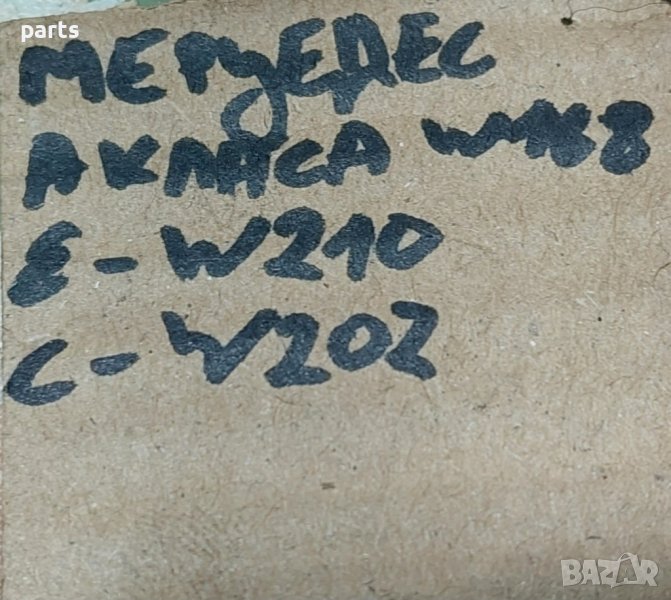 parts
МЕРЦЕДЕС
А КЛАСА W168
E - W210
C - W202
BAZAR